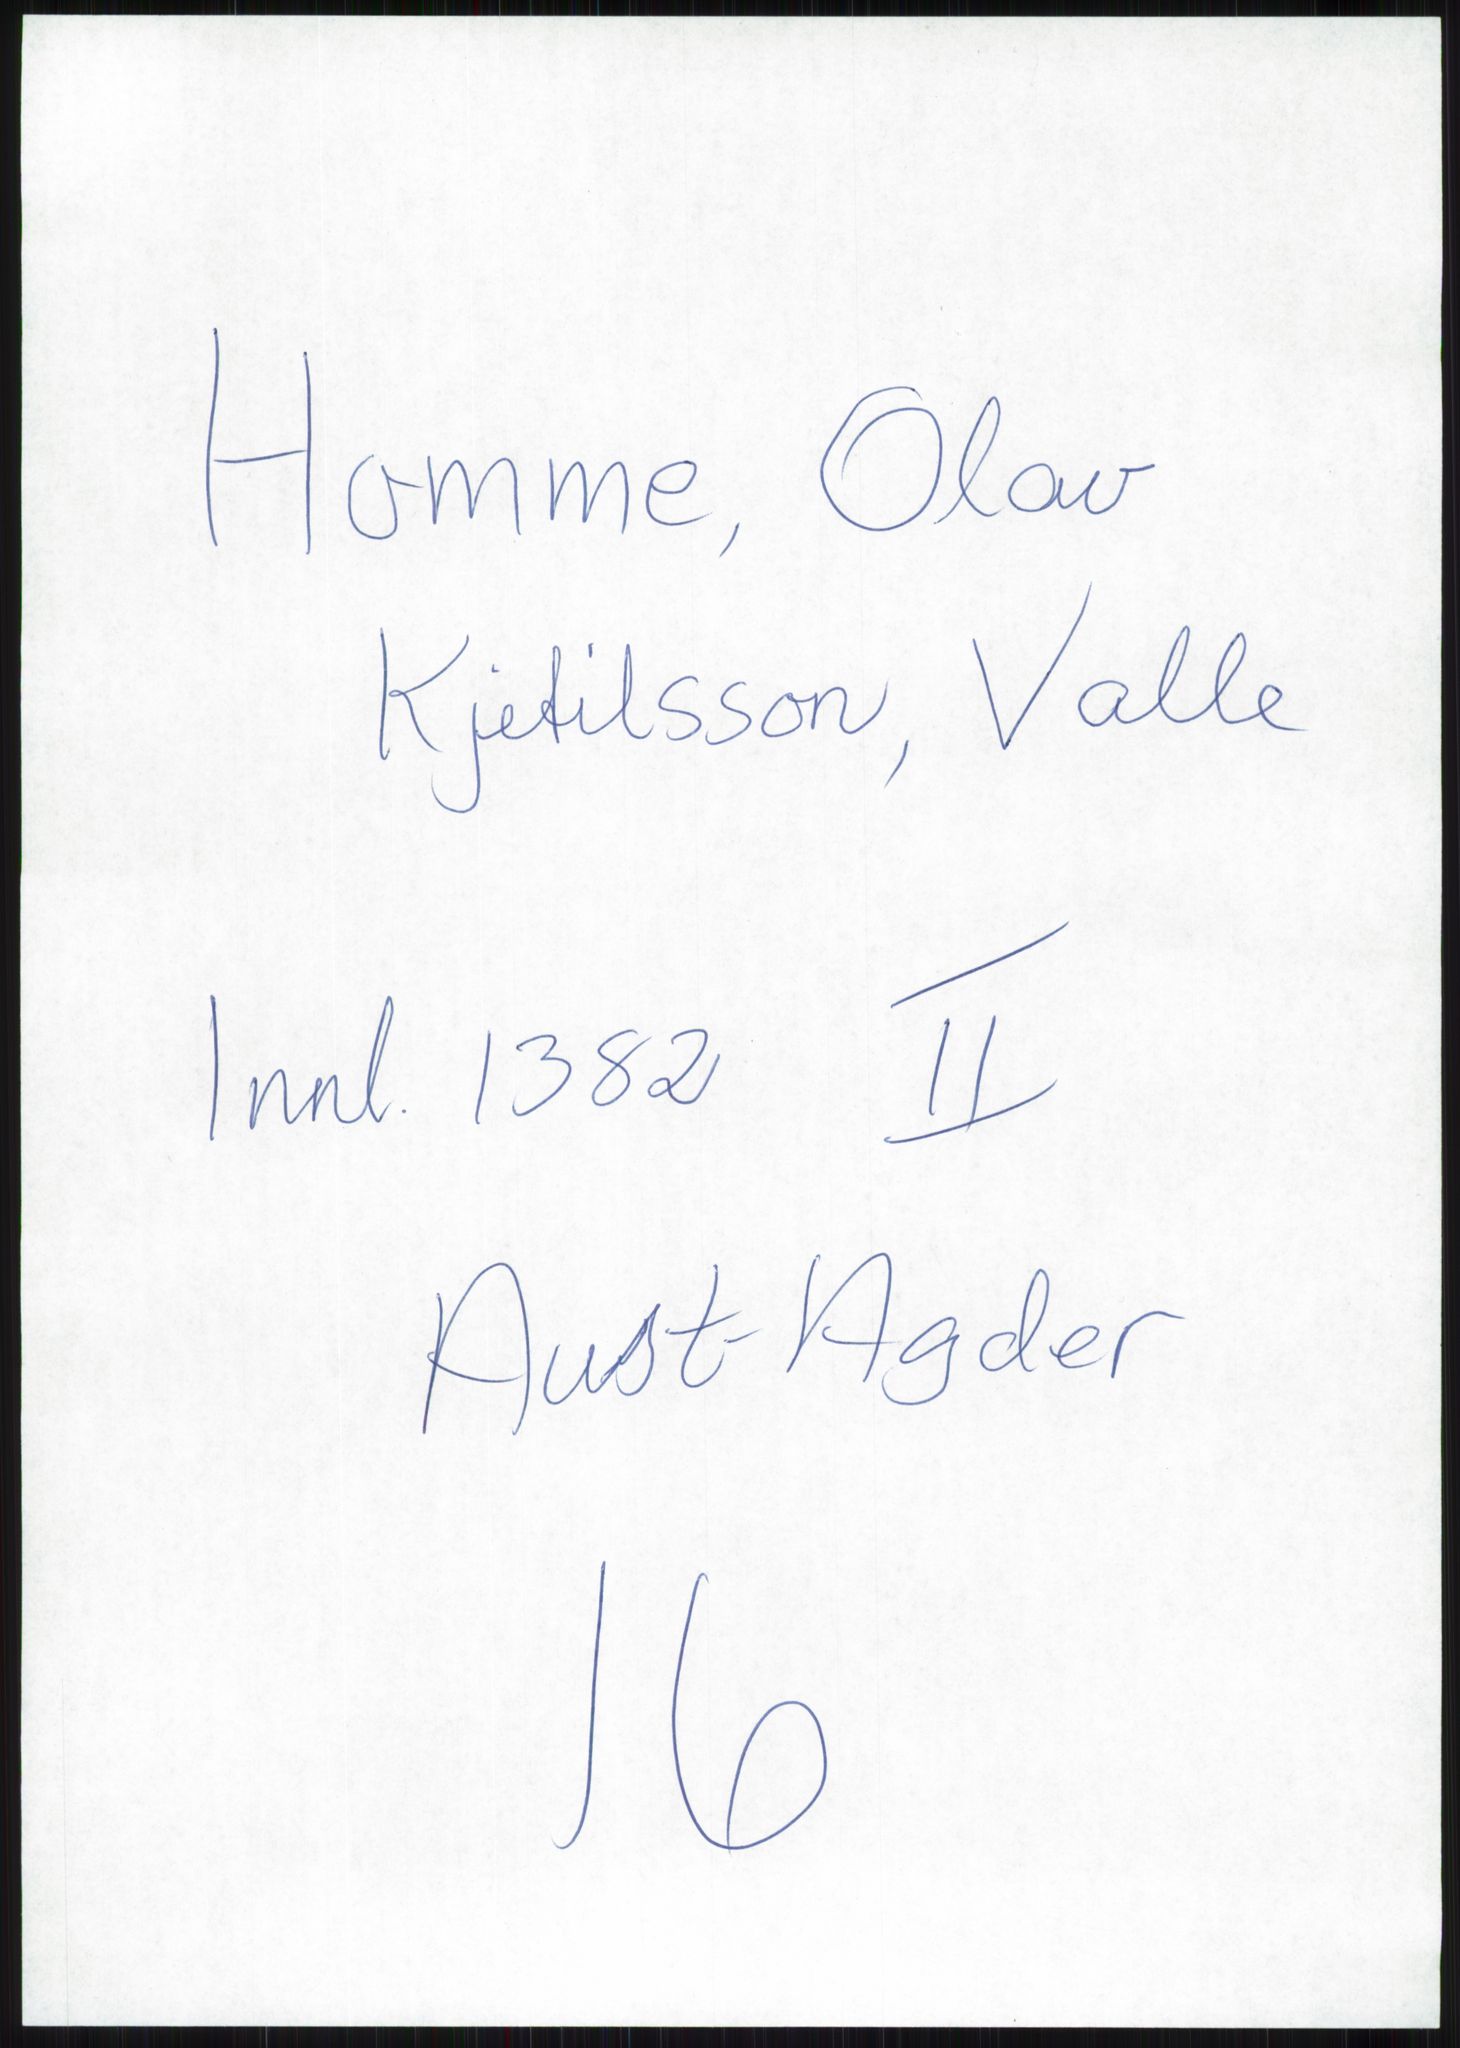 Homme, Olav
Kjetilsson, Valle
Innl. 1382 II
Aust-Agder
16